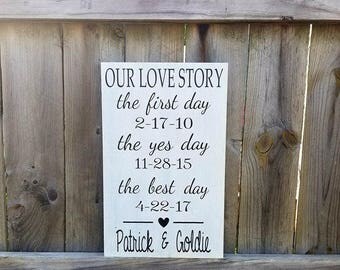 OUR LOVE STORY
the first day
2-17-10
the yes day
11-28-15
the best day
4-22-17
Patrick & Goldie